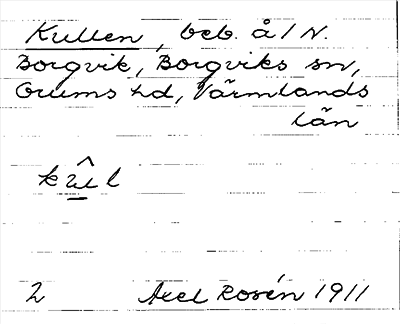 Kullen, beb. å / N.
Borgvik, Borgviks sn,
Grums hd, Värmlands
län
2 Axel Rosén 1911